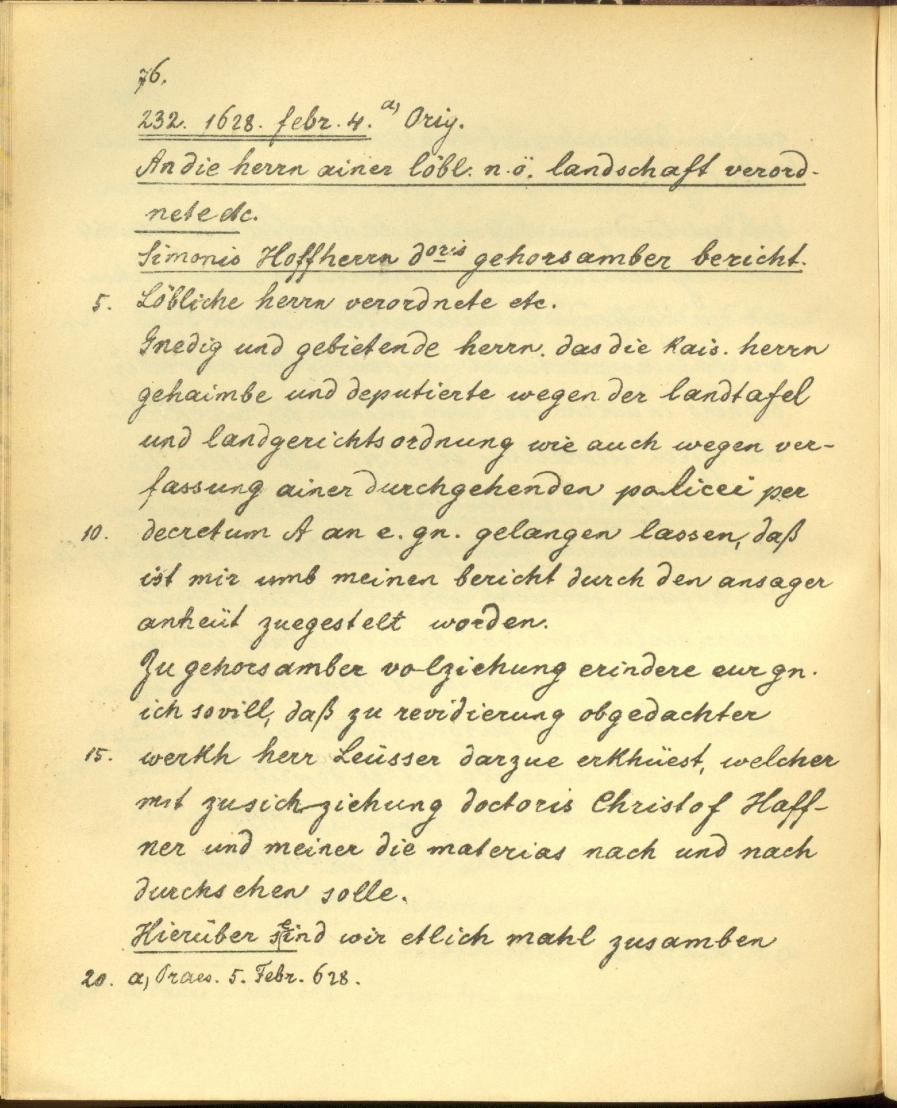 76.
232. 1628. febr. 4. a) Orig.
An die herrn ainer löbl. n.ö. landschaft verord-
nete etc.
Simonis Hoffherrn doris gehorsamber bericht.
5. Löbliche herrn verordnete etc.
Gnedig und gebietende herrn. das die Kais. herrn
gehaimbe und deputierte wegen der landtafel
und landgerichtsordnung wie auch wegen ver-
fassung ainer durchgehenden policei per
10. decretum A an e. gn. gelangen lassen, daß
ist mir umb meinen bericht durch den ansager
anheüt zuegestelt worden.
Zu gehorsamber volziehung erindere eur gn.
ich sovill, daß zu revidierung obgedachter
15. werkh herr Leüsser darzue erkhüest, welcher
mit zusichziehung doctoris Christof Haff-
ner und meiner die materias nach und nach
durchsehen solle.
Hierüber seind wir etlich mahl zusamben
20. a) Praes. 5. Febr. 628.